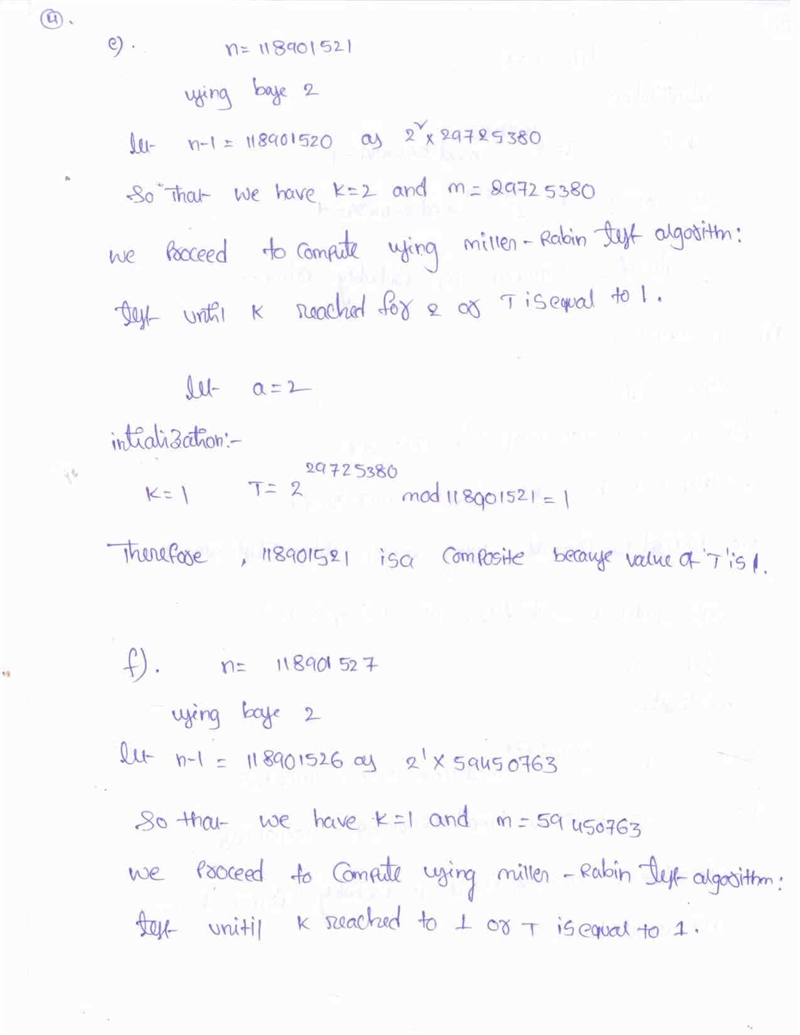 4.
e). n= 118901521
using base 2
let n-1 = 118901520 as 2² × 29725380
So That we have k=2 and m= 29725380
we Proceed to Compute using miller-Rabin test algorithm:
test until K reached for 2 or T is equal to 1.
let a=2
intialization:-
K=1 T= 2^29725380 mod 118901521 = 1
Therefore, 118901521 is a Composite because value of 'T' is 1.
f). n= 118901527
using base 2
let n-1 = 118901526 as 2¹ × 59450763
So that we have k=1 and m= 59450763
we Proceed to Compute using miller-Rabin test algorithm:
test unitil K reached to 1 or T is equal to 1.